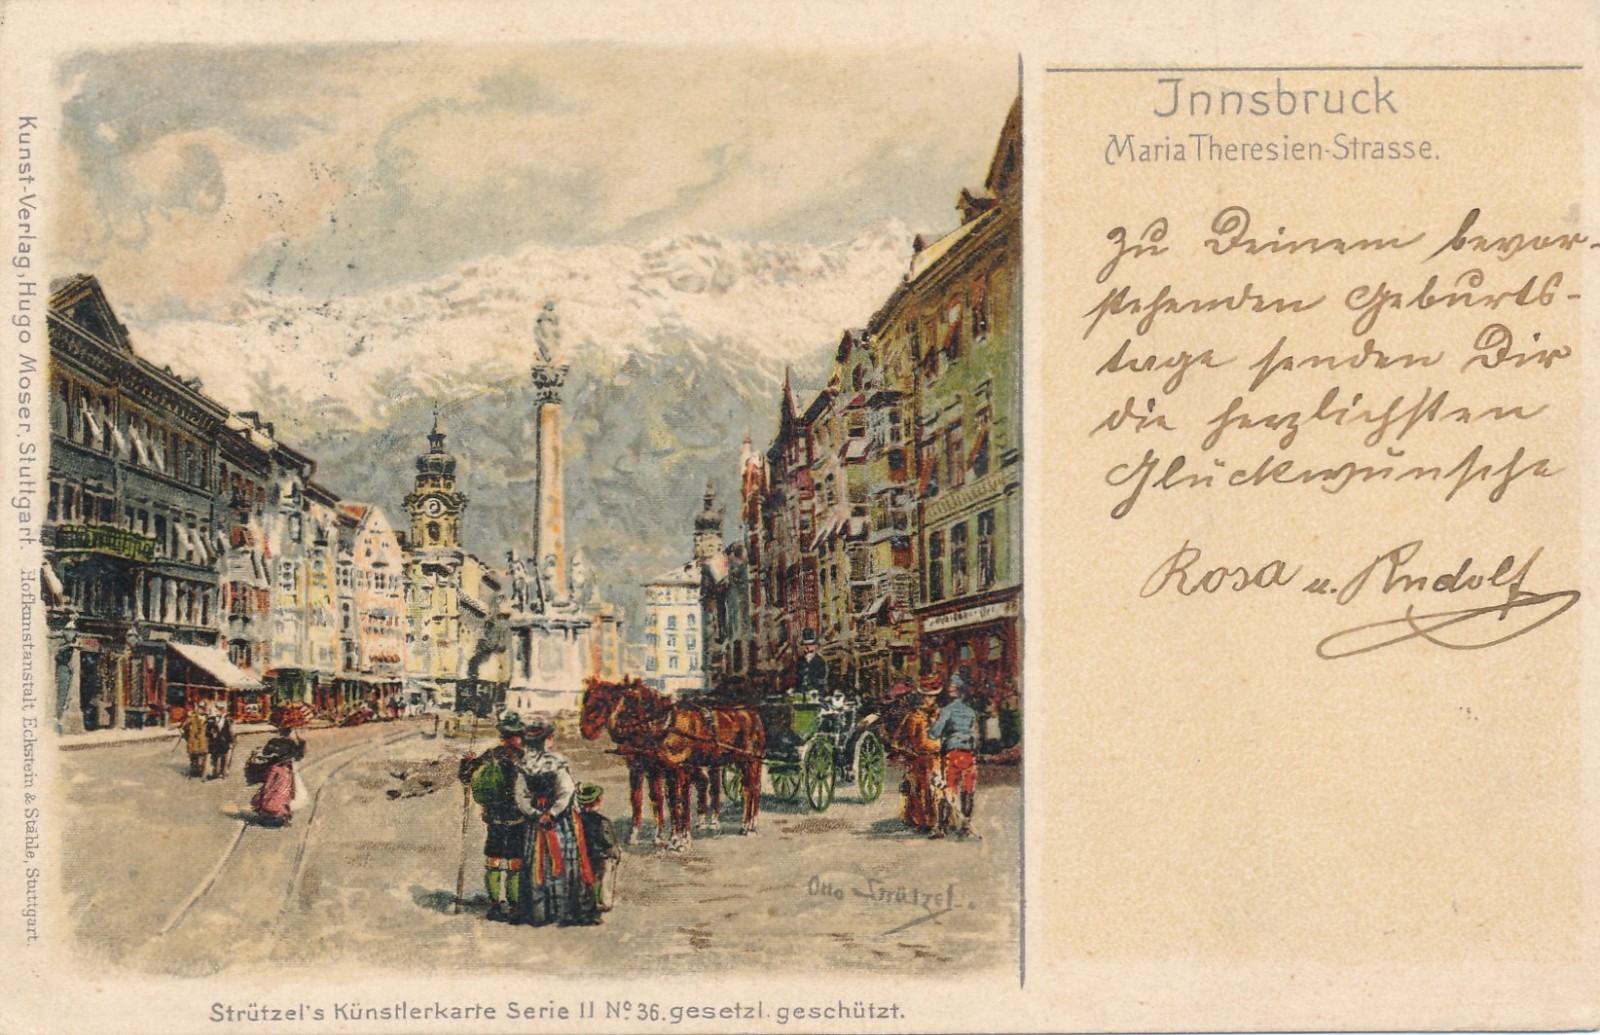 Innsbruck
Maria Theresien-Strasse.
Zu Deinem bevor-
stehenden Geburts-
tage senden Dir
die herzlichsten
Glückwünsche
Rosa u. Rudolf
Kunst-Verlag, Hugo Moser, Stuttgart. Hofkunstanstalt Eckstein & Stähle, Stuttgart.
Otto Strützel.
Strützel's Künstlerkarte Serie II No 36. gesetzl. geschützt.